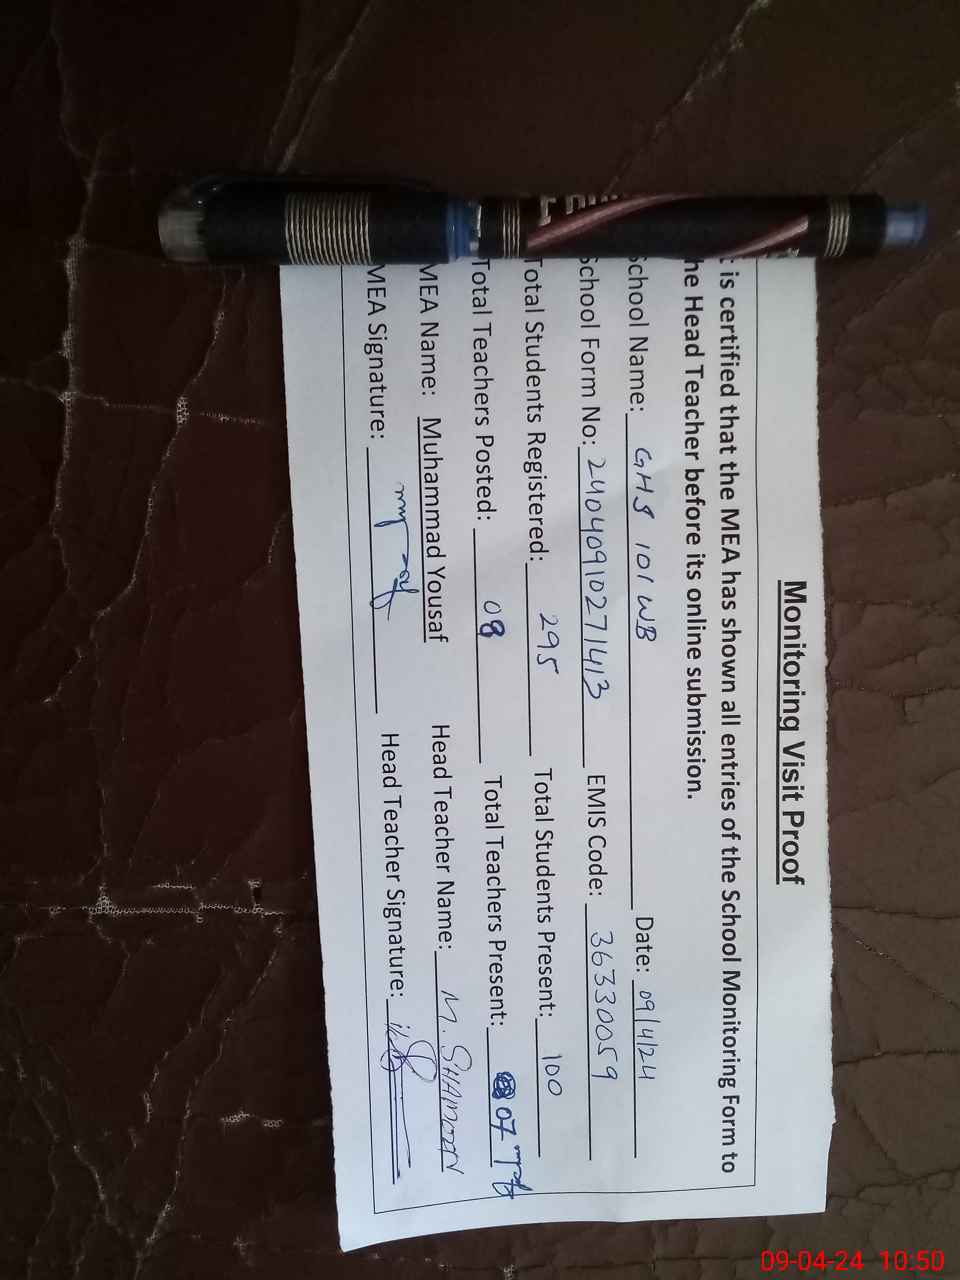 Monitoring Visit Proof
t is certified that the MEA has shown all entries of the School Monitoring Form to
he Head Teacher before its online submission.
School Name: GHS 101 WB Date: 09/4/24
School Form No: 24040910271413 EMIS Code: 36330059
Total Students Registered: 295 Total Students Present: 100
Total Teachers Posted: 08 Total Teachers Present: 07
MEA Name: Muhammad Yousaf Head Teacher Name: M. SHAMOON
MEA Signature: Head Teacher Signature:
09-04-24 10:50